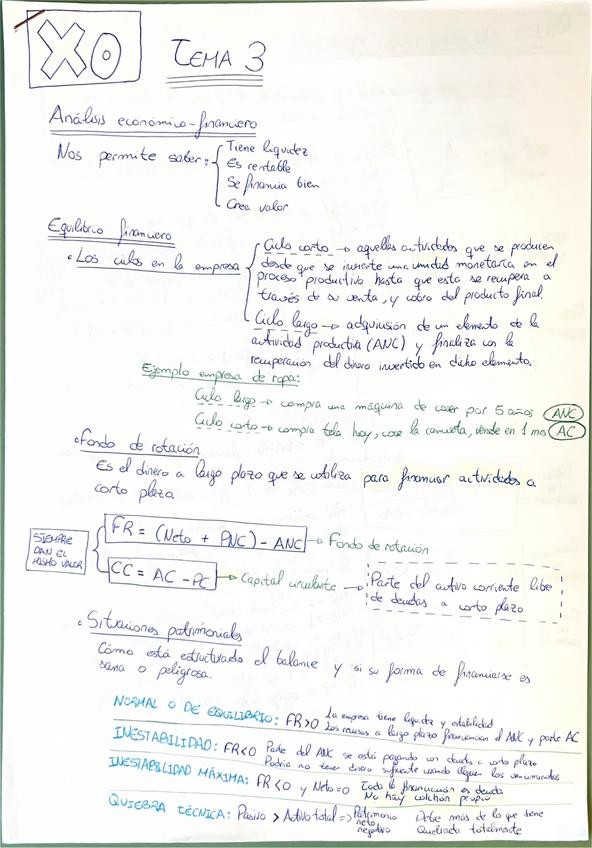 XO
TEMA 3
Análisis económico-financiero
Nos permite saber:
Tiene liquidez
Es rentable
Se financia bien
Crea valor
Equilibrio financiero
• Los ciclos en la empresa
Ciclo corto → aquellas actividades que se producen
desde que se invierte una unidad monetaria en el
proceso productivo hasta que esta se recupera a
través de su venta, y cobro del producto final.
Ciclo largo → adquisición de un elemento de la
actividad productiva (ANC) y finaliza con la
recuperación del dinero invertido en dicho elemento.
Ejemplo empresa de ropa:
Ciclo largo → compra una máquina de coser por 5 años ANC
Ciclo corto → compra tela hoy, cose la camiseta, vende en 1 mes AC
• Fondo de rotación
Es el dinero a largo plazo que se utiliza para financiar actividades a
corto plazo
SIEMPRE
DAN EL
MISMO VALOR
FR = (Neto + PNC) - ANC → Fondo de rotación
CC = AC - PC → Capital circulante → Parte del activo corriente libre
de deudas a corto plazo
• Situaciones patrimoniales
Cómo está estructurado el balance y si su forma de financiarse es
sana o peligrosa.
NORMAL O DE EQUILIBRIO: FR>0 La empresa tiene liquidez y estabilidad
Los recursos a largo plazo financian el ANC y parte AC
INESTABILIDAD: FR<0 Parte del ANC se está pagando con deudas a corto plazo
Podría no tener dinero suficiente cuando lleguen los vencimientos
INESTABILIDAD MÁXIMA: FR<0 y Neto=0 Toda la financiación es deuda
No hay colchón propio
QUIEBRA TÉCNICA: Pasivo > Activo total => Patrimonio neto negativo Debe más de lo que tiene
Quebrada totalmente